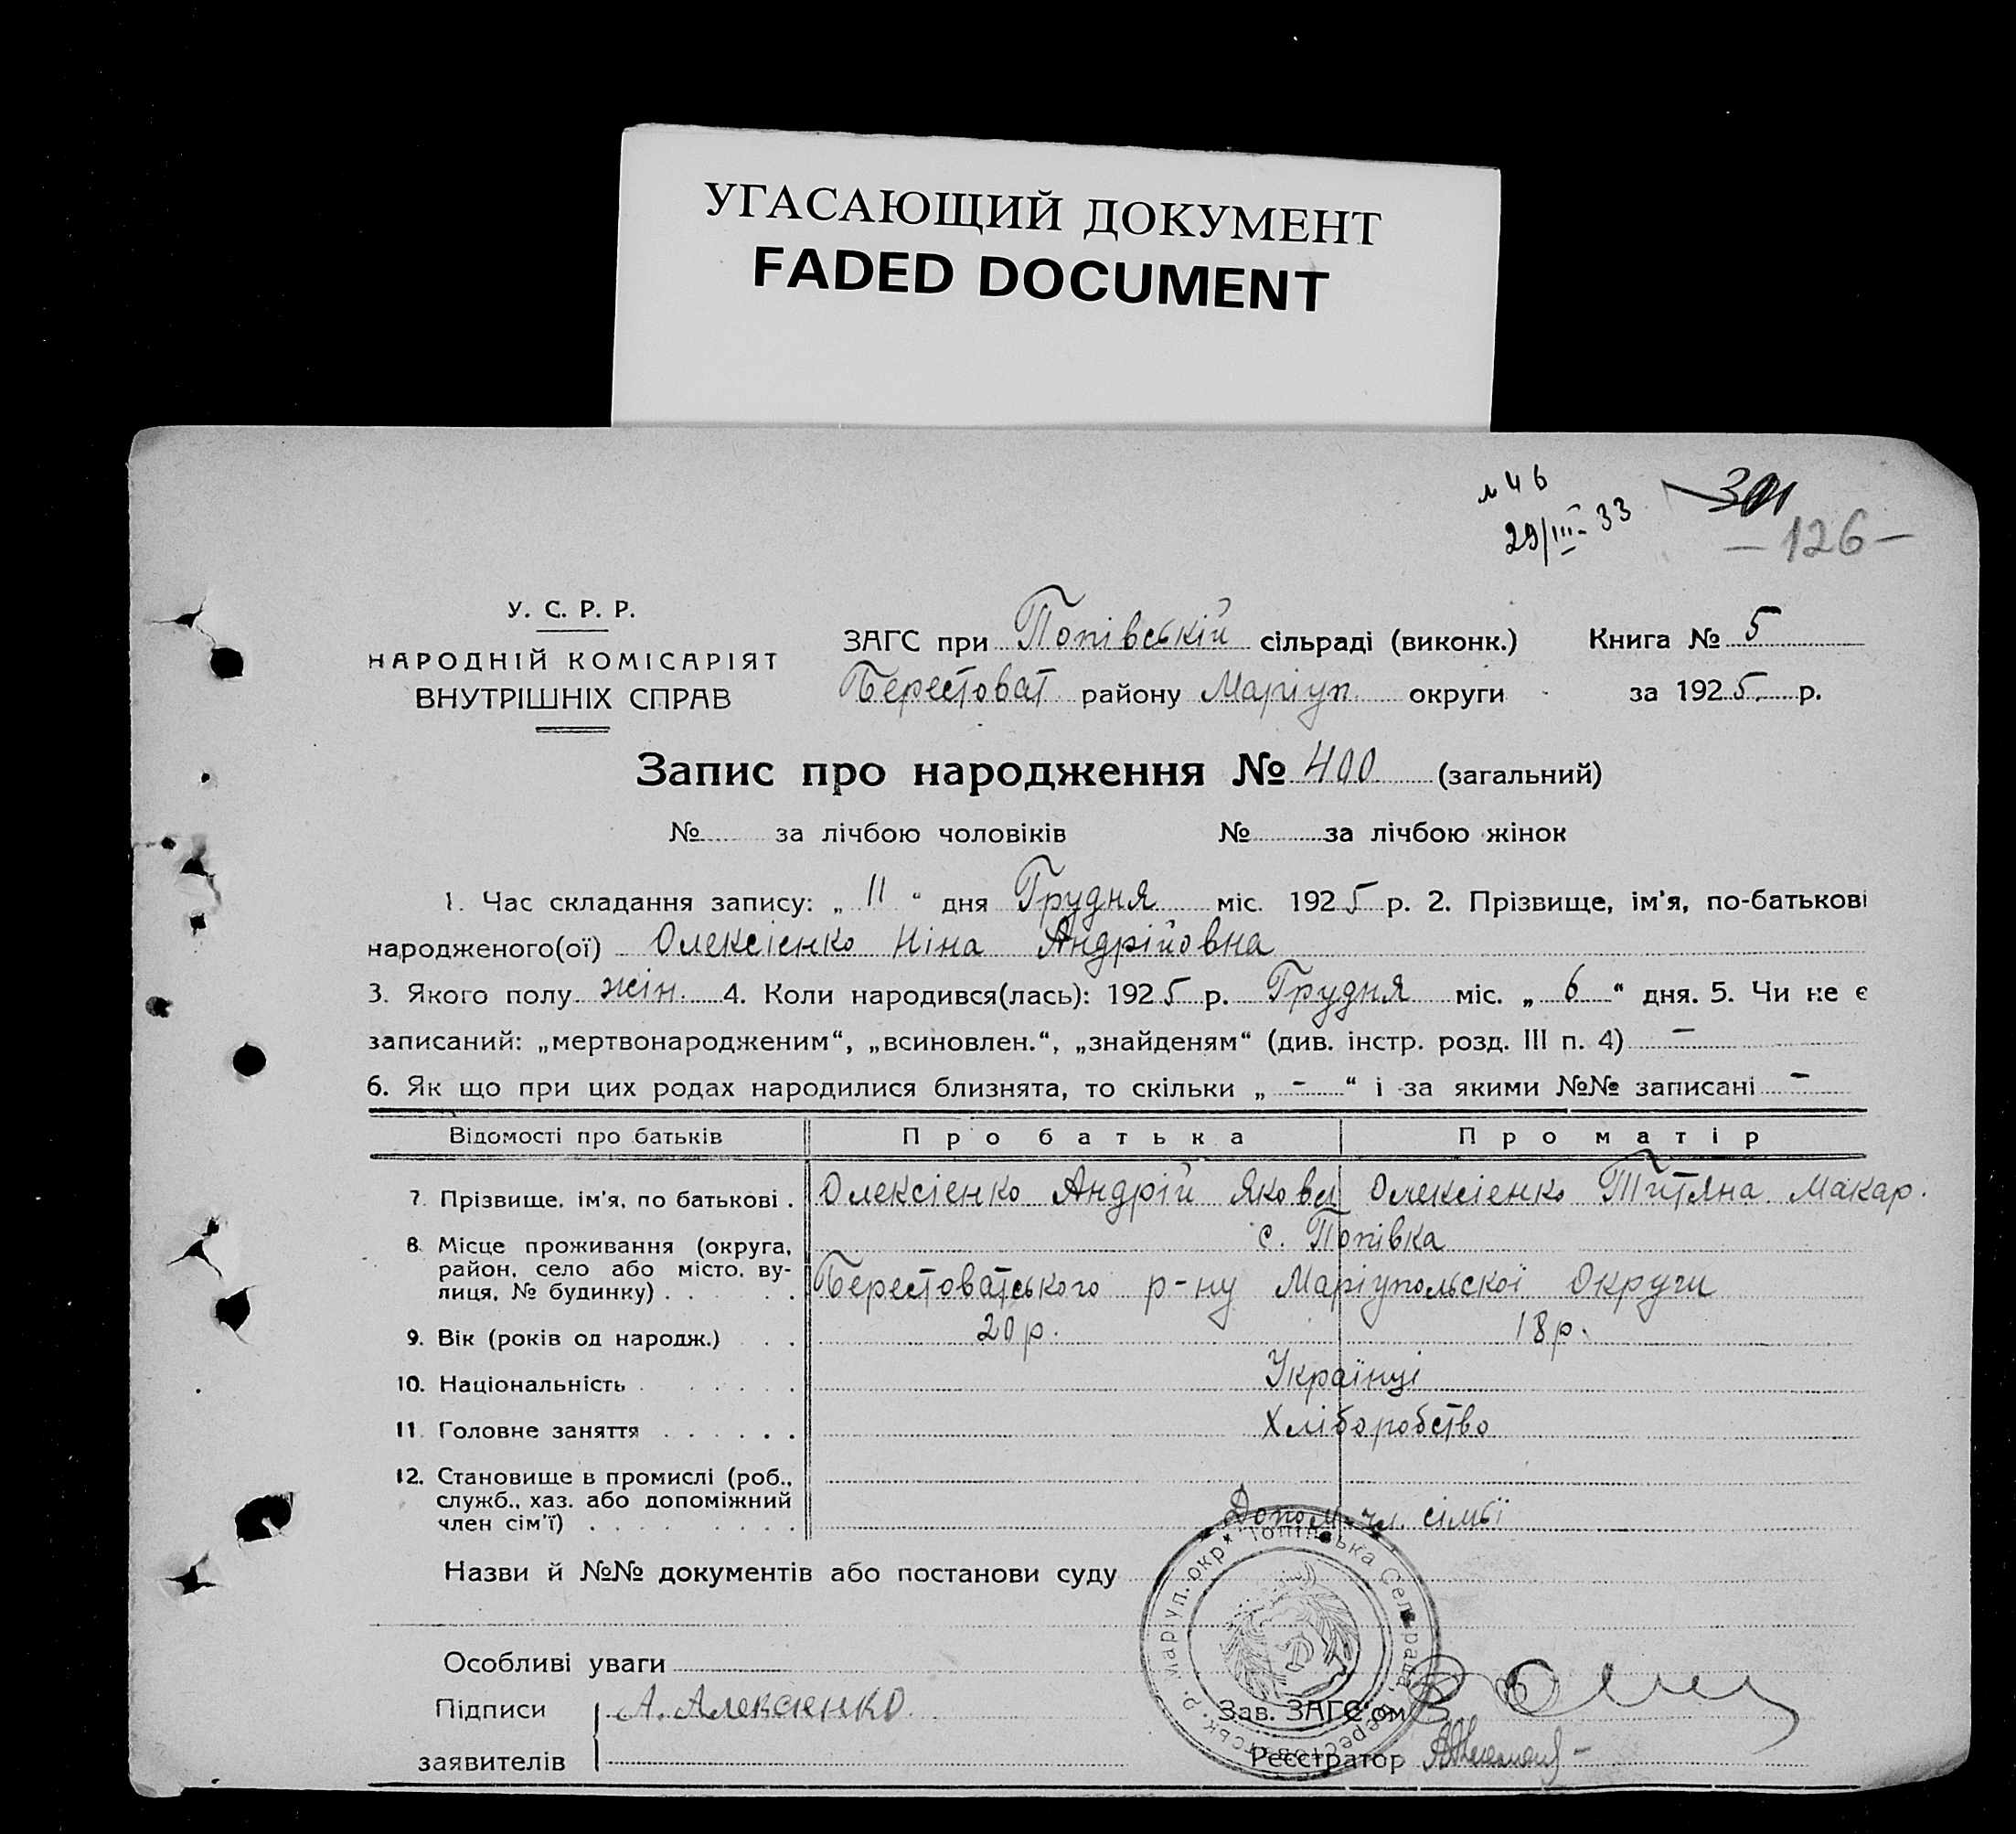 УГАСАЮЩИЙ ДОКУМЕНТ
FADED DOCUMENT
№ 46
29/III-33
-126-
У. С. Р. Р.
НАРОДНІЙ КОМІСАРІЯТ
ВНУТРІШНІХ СПРАВ
ЗАГС при Попівській сільраді (виконк.) Книга № 5
Берестоват району Маріуп округи за 1925 р.
Запис про народження № 400 (загальний)
№ за лічбою чоловіків № за лічбою жінок
1. Час складання запису: „ 11 “ дня Грудня міс. 1925 р. 2. Прізвище, ім'я, по-батькові
народженого(ої) Олексієнко Ніна Андрійовна
3. Якого полу жін. 4. Коли народився(лась): 1925 р. Грудня міс. „ 6 “ дня. 5. Чи не є
записаний: „мертвонародженим“, „всиновлен.“, „знайденям“ (див. інстр. розд. III п. 4) –
6. Як що при цих родах народилися близнята, то скільки „ - “ і за якими №№ записані -
Відомості про батьків Про батька Про матір
7. Прізвище, ім'я, по батькові . Олексієнко Андрій Яковл Олексієнко Титяна Макар.
8. Місце проживання (округа, с. Попівка
район, село або місто, ву-
лиця, № будинку) . . . . . Берестоватського р-ну Маріупольскої Округи
9. Вік (років од народж.) . . 20 р. 18 р.
10. Національність . . . . . . Українці
11. Головне заняття . . . . . . Хліборобство
12. Становище в промислі (роб.,
служб., хаз. або допоміжний
член сім'ї) . . . . . . . . . Допом. чл. сімьї
Назви й №№ документів або постанови суду
Особливі уваги
Підписи А. Алексієнко Зав. ЗАГС'ом
заявителів Реєстратор